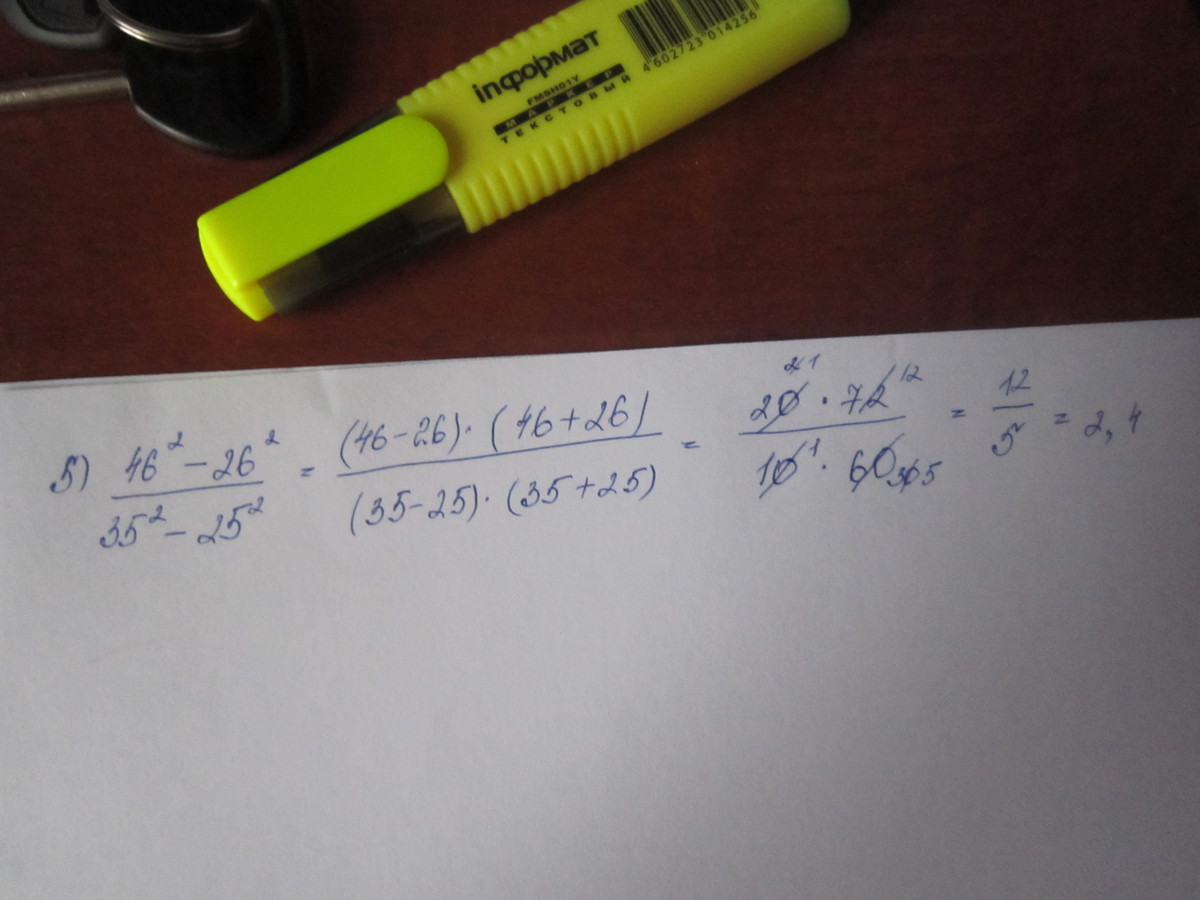 inформат
FMSH01Y
МАРКЕР
ТЕКСТОВЫЙ
4 602723 014256
5) (46² − 26²)/(35² − 25²) = ((46−26)·(46+26))/((35−25)·(35+25)) = (20 2 1 · 72 12)/(10 1 · 60 30 5) = 12/5 = 2,4